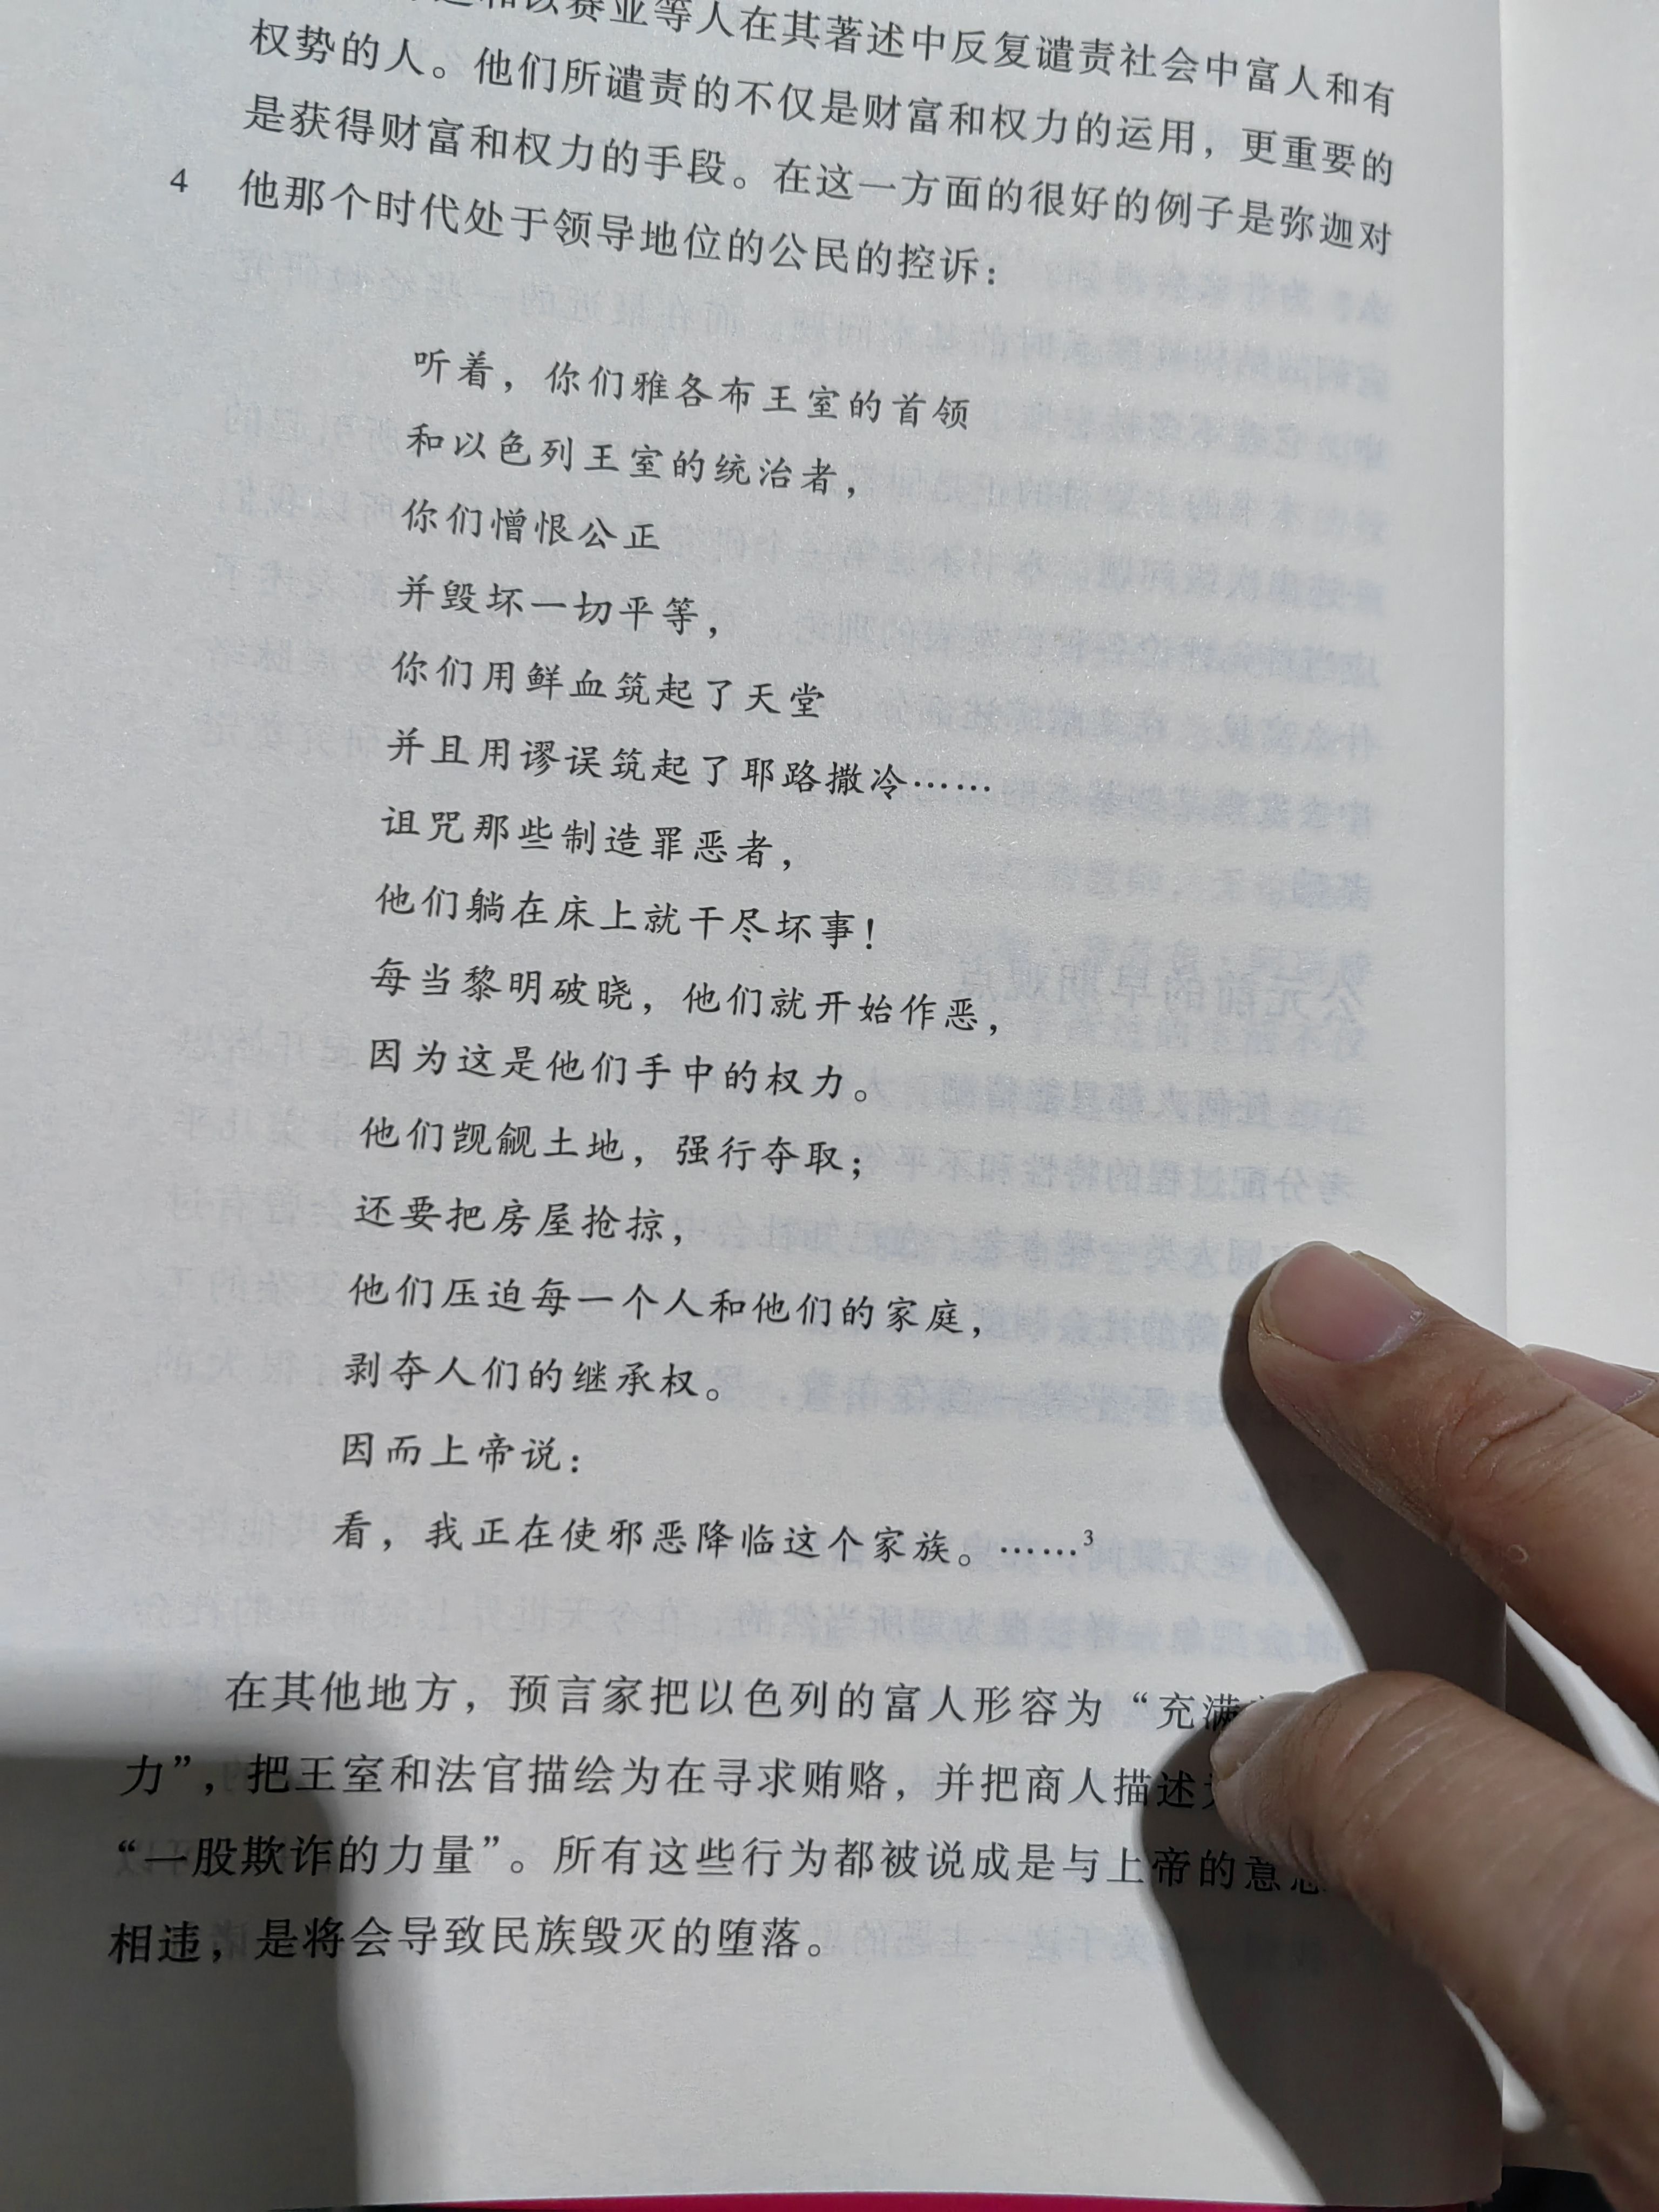 和以赛亚等人在其著述中反复谴责社会中富人和有
权势的人。他们所谴责的不仅是财富和权力的运用，更重要的
是获得财富和权力的手段。在这一方面的很好的例子是弥迦对
4 他那个时代处于领导地位的公民的控诉：
听着，你们雅各布王室的首领
和以色列王室的统治者，
你们憎恨公正
并毁坏一切平等，
你们用鲜血筑起了天堂
并且用谬误筑起了耶路撒冷……
诅咒那些制造罪恶者，
他们躺在床上就干尽坏事！
每当黎明破晓，他们就开始作恶，
因为这是他们手中的权力。
他们觊觎土地，强行夺取；
还要把房屋抢掠，
他们压迫每一个人和他们的家庭，
剥夺人们的继承权。
因而上帝说：
看，我正在使邪恶降临这个家族。……3
在其他地方，预言家把以色列的富人形容为“充满
力”，把王室和法官描绘为在寻求贿赂，并把商人描述
“一股欺诈的力量”。所有这些行为都被说成是与上帝的意
相违，是将会导致民族毁灭的堕落。